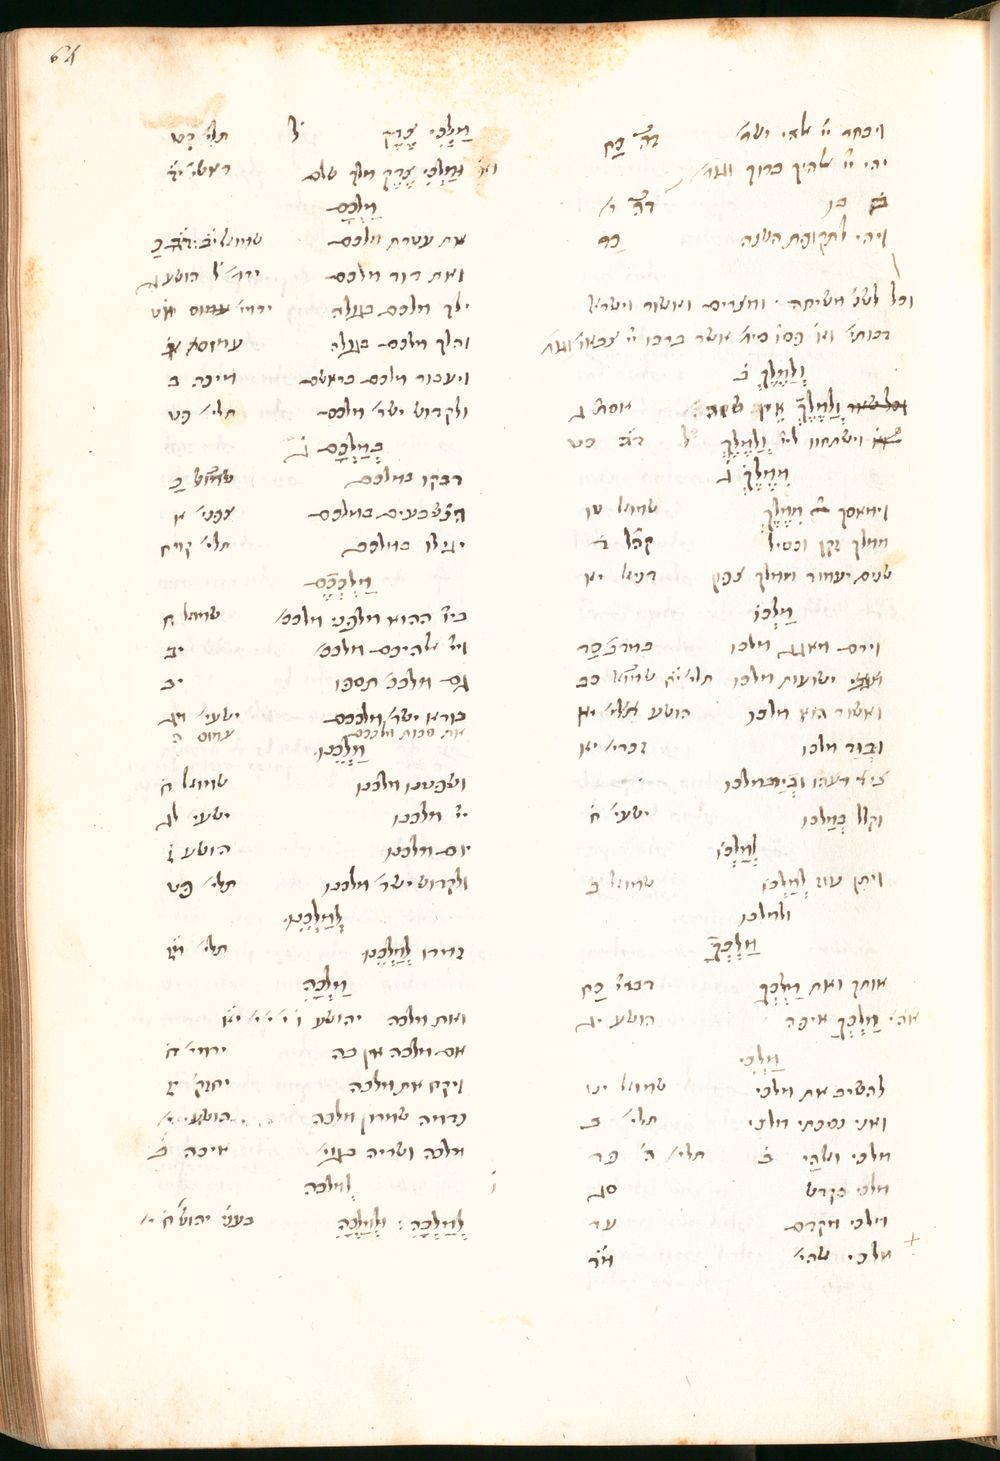 64
ויבחר יי אלהי ישר׳ דה׳ כח
יהי יי אלהיך ברוך וגו׳
דה׳ י׳
ויהי לתקופת השנה כד
וכל לשׁ משיחה ומצרים ואשור וישראל
אשר ברכו יי צבאו׳
וְלַמֶלֶךְ ב
וְלַמֶלֶךְ אין שוה׳ אסת׳ ג
וישתחוו ליי וְלַמֶלֶךְ ל׳ דה׳ כט
מִמֶלֶךְ ג
וימאסך מִמֶלֶךְ שמואל טו
ממלך זקן וכסיל קהל׳ ד
שנים יעמוד ממלך צפון דניאל יא
מַלְכּוֹ
וירם מאגג מלכו במדב׳ כד
ישועות מלכו תלי׳ יח שמו׳ כב
ואשור הוא מלכו הושע יא
וּבְיַד מלכו זכרי׳ יא
איש רעהו וביד מלכו
וקלל בְמלכו ישעי׳ ח
לְמַלְכּוֹ
ויתן עוז לְמַלְכּוֹ שמואל ב
ולמלכו
מַלְכְּךָ
אותך ואת מַלְכְּךָ דברי׳ כח
אהי מַלְכְּךָ איפה הושע יג
מַלְכִּי
להשיב את מלכי שמואל יט
ואני נסכתי מלכי תלי׳ ב
מלכי ואלהי ב תלי׳ ה׳ פד
מלכי בקדש סג
מלכי מקדם עד
מלכי שהי׳
מַלְכִּי צֶדֶק ל תלי׳ קט
וּמַלְכִּי צֶדֶק מלך שלם ראשי׳ יד
מַלְכָּם
את עטרת מלכם שמואל יב׃ דה׳ כ
ואת דוד מלכם ירמ׳ ל הושע ג
ילך מלכם בגולה ירמי׳ עמוס
והלך מלכם בגולה עמוס א
ויעבור מלכם בראשם מיכה ב
ולקדוש ישר׳ מלכם תלי׳ פט
בְּמַלְכָּם ג
דבקו במלכם שמו׳ כ
הנשבעים במלכם צפני׳ א
יגילו במלכם תלי׳ קמח
מַלְכְּכֶם
ביום ההוא מלפני מלככ׳ שמואל ח
ויי אלהיכם מלככ׳ יב
גם מלככ׳ תספו יב
בורא ישר׳ מלככם ישעי׳ מג
את סכות מלככם עמוס ה
מַלְכֵּנוּ
ושפטנו מלכנו שמואל ח
יי מלכנו ישעי׳ לג
יום מלכנו הושע ז
ולקדוש ישר׳ מלכנו תלי׳ פט
לְמַלְכֵּנוּ
זמרו לְמַלְכֵּנוּ תלי׳
מַלְכָּהּ
ואת מלכה יהושע
אם מלכה אין בה ירמי׳ ח
ויקח את מלכה יחזק׳ יז
נדמה שמרון מלכה הושע י׳
מלכה ושריה בגוי׳ איכה ב
למלכה
לְמַלְכָּהּ׃ וּלְמַלְכָּהּ בעני׳ יהוש׳ ח׳ י׳